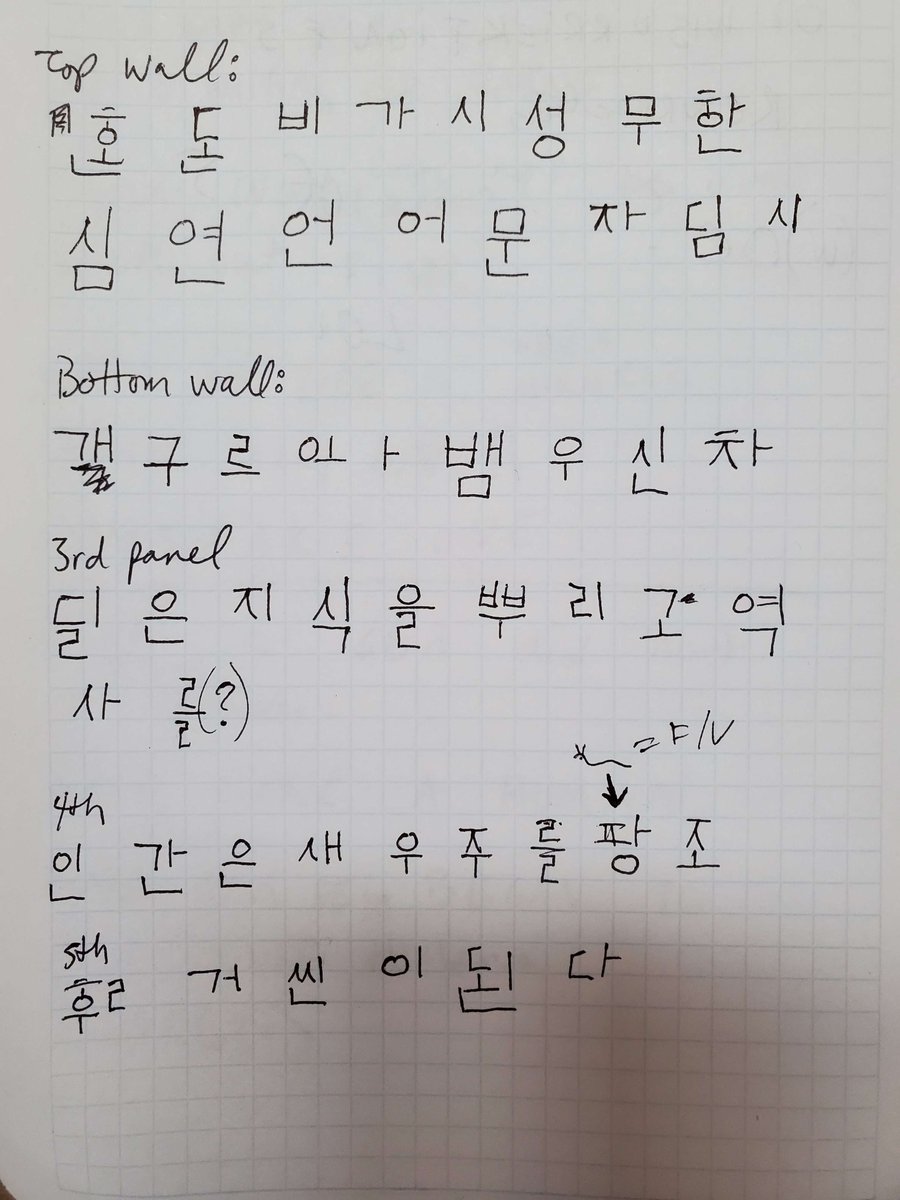 Top wall:
혼 돈 비 가 시 성 무 한
심 연 언 어 문 자 딤 시
Bottom wall:
구 르 ㅏ 뱀 우 신 차
3rd panel
딜 은 지 식 을 뿌 리 고 역
사 를(?)
= F/V
4th
인 간 은 새 우 주 를 팡 조
5th
후ㄹ 거 씬 이 된 다